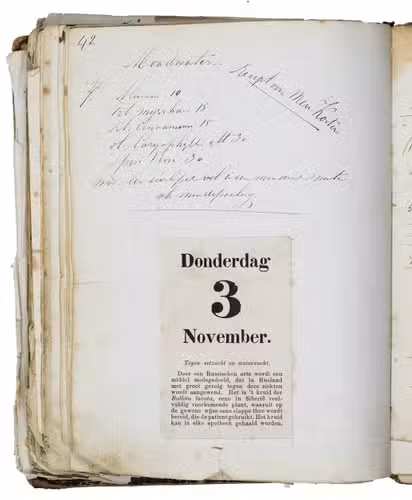 42
Mondwater.
Recept van Men. Koster
Alumin 10
tct. myrrhae 15
tct. Cynnamomi 15
ol. Caryophyll. gtt 30
een
als mondspoeling
Donderdag
3
November.
Tegen eetzucht en waterzucht.
Door een Russischen arts wordt een
middel medegedeeld, dat in Rusland
met groot gevolg tegen deze ziekten
wordt aangewend. Het is 't kruid der
Ballota lanata, eene in Siberië veel-
vuldig voorkomende plant, waaruit op
de gewone wijze eene slappe thee wordt
bereid, die de patient gebruikt. Het kruid
kan in elke apotheek gehaald worden.